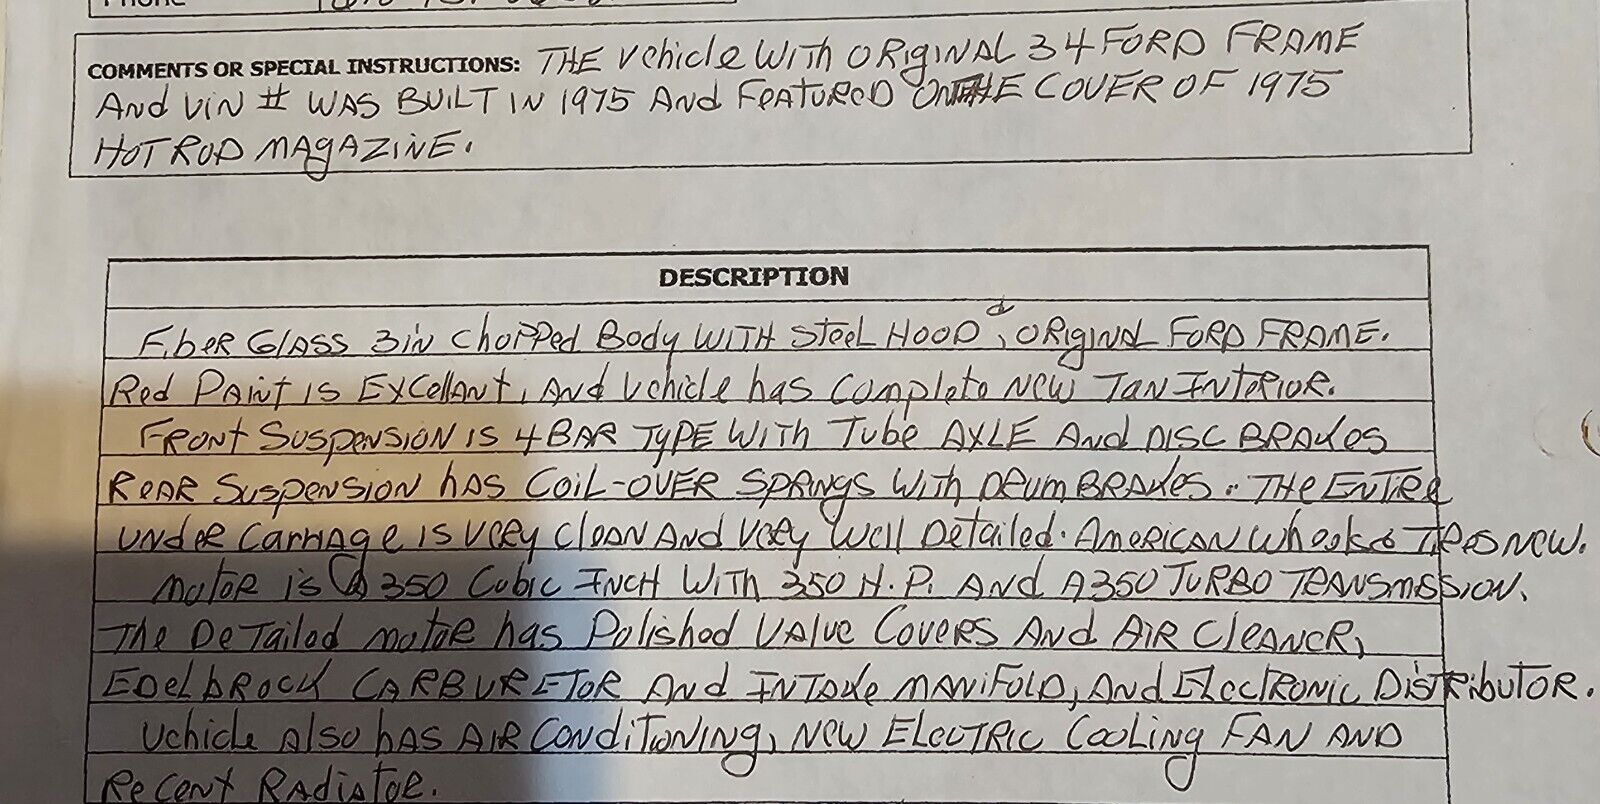 Phone
COMMENTS OR SPECIAL INSTRUCTIONS: THE vehicle WITH ORIgINAL 34 FORD FRAME
And viN # WAS BUILT IN 1975 And FeATUReD ON THE COVER OF 1975
HOT ROD MAgAZINE.
DESCRIPTION
FiberGlASS 3in chopped Body WITH Steel HOOD &, ORIgINAL FORD FRAME.
Red PAint IS EXCellAnt, And vehicle has complete NEW TAN INTERIOR.
FRONt SuspenSION IS 4 BAR TYPE WITH Tube AXLE And DISC BRAKes
ReAR SuspenSION hAS COIL-OVER SPRINgS With DRum BRAKes.. THE ENTIRE
UNdeR CArriAge IS VeRy cleAN ANd VeRy Well DetAiled. AmeRICAN Wheels & TIRes NEW.
MotoR is A 350 Cubic INCH WITH 350 H.P. ANd A 350 TURBO TRANSmISSION.
THe DeTAiled motoR has Polished VAlve COVERS ANd AiR CleANeR,
EDelbROCK CARBURETOR ANd INTAKe MANiFOLD, ANd ElecTRONIC DistRibuTOR.
Vehicle Also hAS AIR CONdiTioNiNg, NEW ElecTRIC CooLiNg FAN AND
ReceNt RADiAtoR.